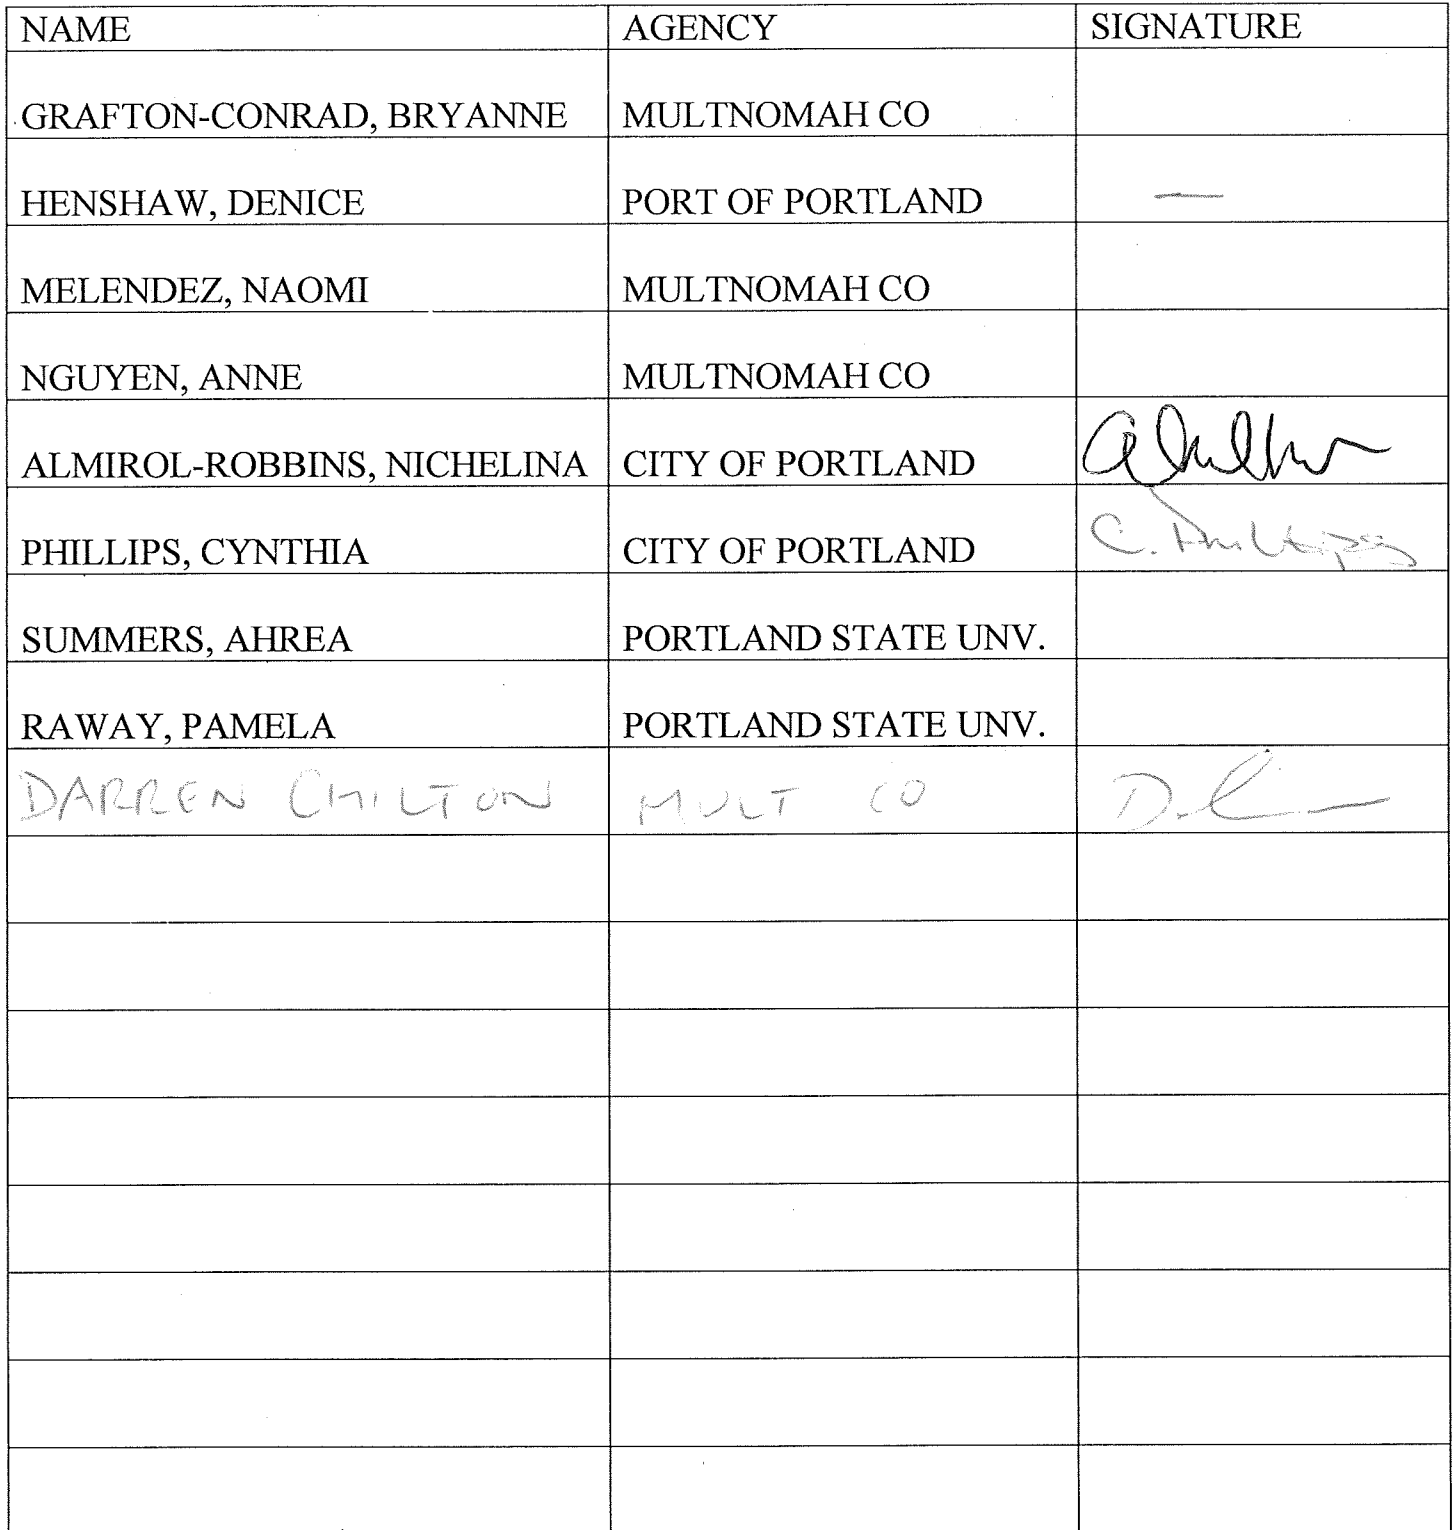 NAME AGENCY SIGNATURE
GRAFTON-CONRAD, BRYANNE MULTNOMAH CO
HENSHAW, DENICE PORT OF PORTLAND —
MELENDEZ, NAOMI MULTNOMAH CO
NGUYEN, ANNE MULTNOMAH CO
ALMIROL-ROBBINS, NICHELINA CITY OF PORTLAND
PHILLIPS, CYNTHIA CITY OF PORTLAND C. Phillips
SUMMERS, AHREA PORTLAND STATE UNV.
RAWAY, PAMELA PORTLAND STATE UNV.
DARREN CHILTON MULT CO